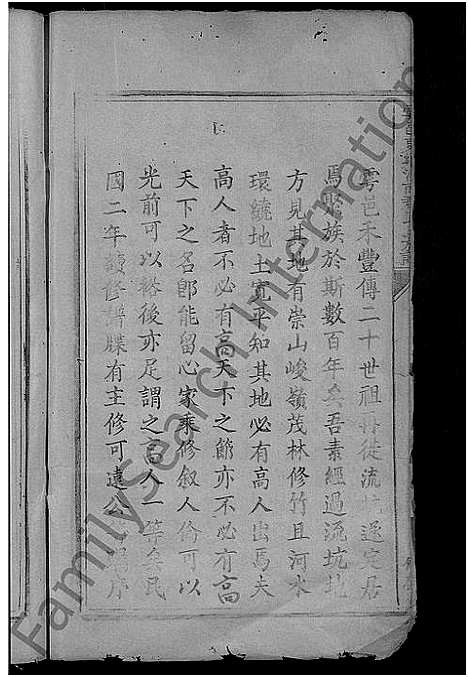 雩邑禾豐傳二十世祖再徙流坑遂定居
焉聚族於斯數百年矣吾素經過流坑地
方見其地有崇山峻嶺茂林修竹且河水
環繞地土寬平知其地必有高人出焉夫
高人者不必有高天下之節亦不必有高
天下之名卽能留心家乘修叙人倫可以
光前可以裕後亦足謂之高人一等矣民
國二年續修譜牒有主修可遠公序
FamilySearch International